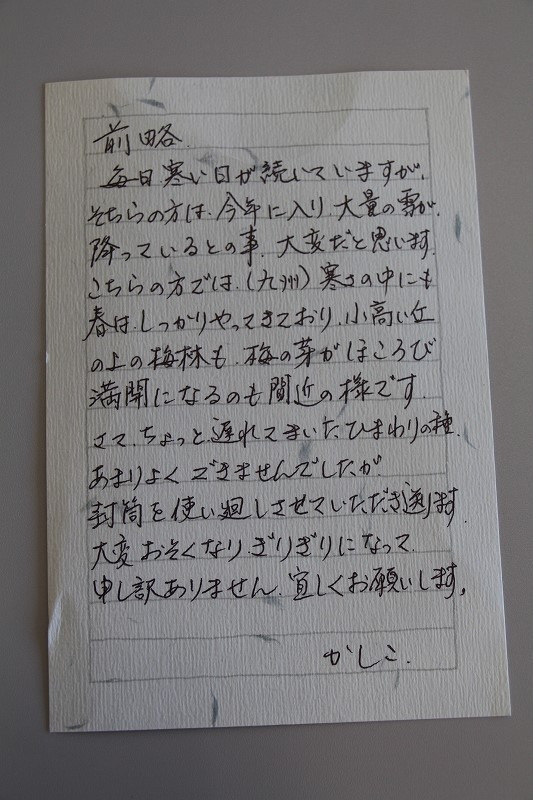 前略
毎日寒い日が続いていますが、
そちらの方は、今年に入り、大量の雪が、
降っているとの事、大変だと思います。
こちらの方では、(九州)寒さの中にも
春は、しっかりやってきており、小高い丘
の上の梅林も、梅の芽がほころび
満開になるのも間近の様です。
さて、ちょっと遅れてまいた、ひまわりの種、
あまりよくできませんでしたが
封筒を使い廻しさせていただき送ります。
大変おそくなり、ぎりぎりになって、
申し訳ありません、宜しくお願いします。
かしこ.